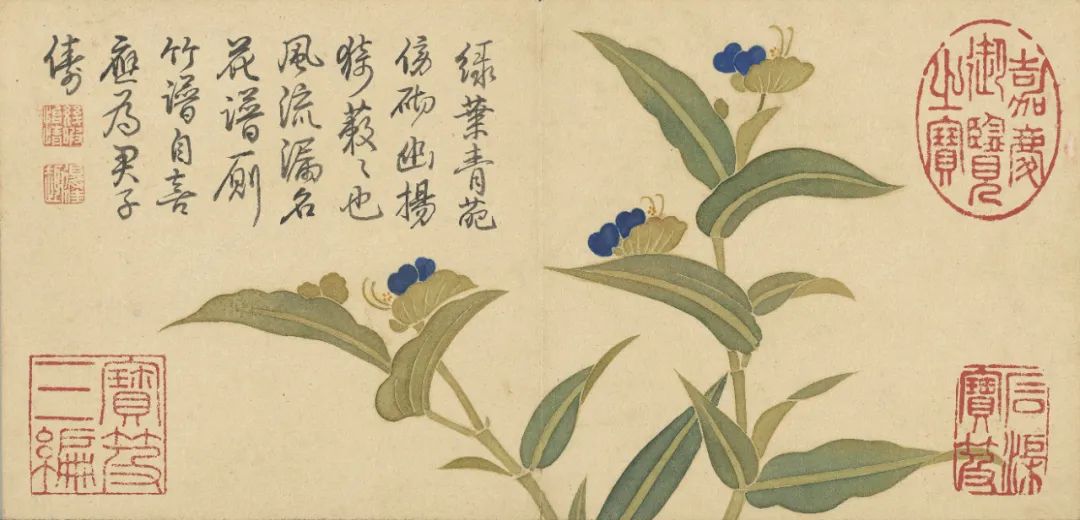 嘉慶
御覽
之寶
綠葉青葩
傍砌幽揚
猗蔌〻也
風流漏名
花譜厠
竹譜自喜
應為君子
儔
石渠
寶笈
寶笈
三編